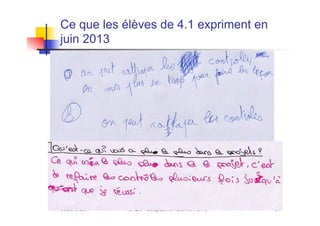 Ce que les élèves de 4.1 expriment en
juin 2013
on peut rattraper les controlles
on mes plus de temps pour faire les leçon
on peut rattraper les controles
Qu'est-ce qui vous a plus le plus dans le projets?
Ce qui m'a le plus plue dans le projet, c'est
de refaire les contrôles plusieurs fois jusqu'à
que je réussi.